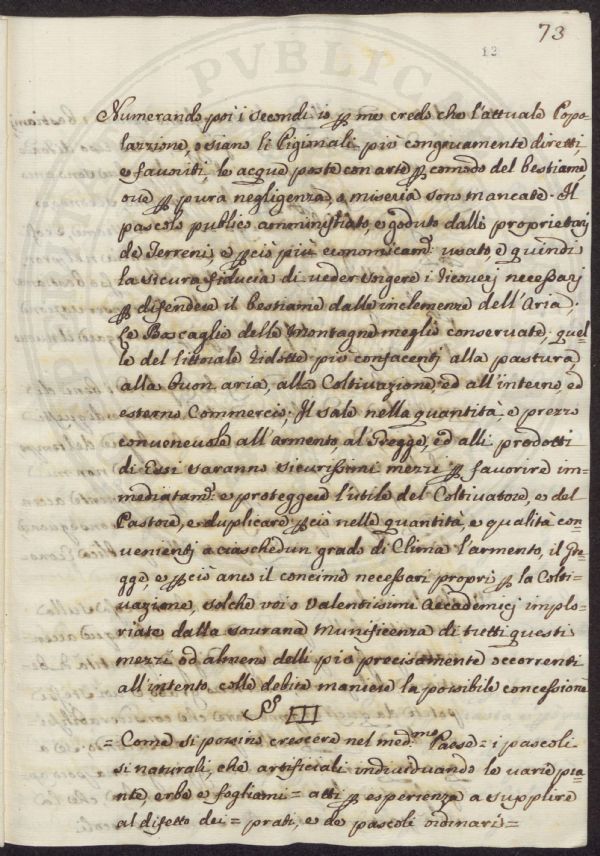 73
12
PVBLICA
Numerando poi i secondi io ꝑ me credo che l'attuale Popo=
lazzione, o siano li Pigionali più congruamente diretti,
e favoriti, le acque poste con arte ꝑ comodo del bestiame,
ove ꝑ pura negligenza, o miseria sono mancate. Il
pascolo publico amministrato, e goduto dalli proprietarj
de Terreni, e ꝑciò più economicamᵉ: usato e quindi
la sicura fiducia di veder sorgere i ricoverj necessarj
ꝑ difendere il bestiame dalle inclemenze dell'Aria;
Le Boscaglie delle Montagne meglio conservate, quel=
le del littorale ridotte più confacentj alla pastura,
alla buon aria, alla Coltivazione, ed all'interno, ed
esterno Commercio; Il sale nella quantità, e prezzo
convenevole all'armento, al Gregge, ed alli prodotti
di Essi saranno sicurissimi mezzi ꝑ favorire im=
mediatamᵉ: e proteggere l'utile del Coltivatore, e del
Pastore, e duplicare ꝑciò nelle quantità, e qualità con=
venientj a ciaschedun grado di Clima l'armento, il Gre=
gge, e ꝑciò anco il concime necessari propri ꝑ la Colti=
vazione, solche voi o Valentissimi Accademicj implo=
riate dalla sovrana Munificenza di tutti questi
mezzi od almeno delli più precisamente occorrenti
all'intento colle debite maniere la possibile concessione
§ III
= Come si possino crescere nel medᵐᵒ Paese = i pascoli
si naturali, che artificiali individuando le varie pia=
nte, erbe e fogliami = atti ꝑ esperienza a supplire
al difetto dei = prati, e de pascoli ordinari =